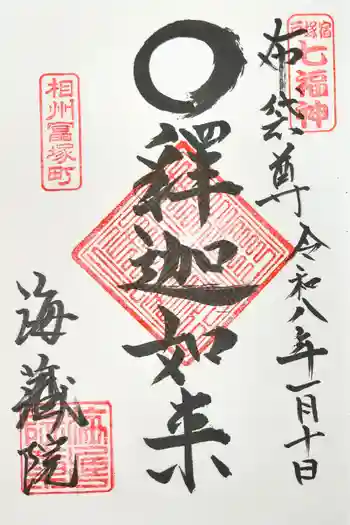 布袋尊 令和八年一月十日
七福神
釋迦如来
相州冨塚町
海藏院